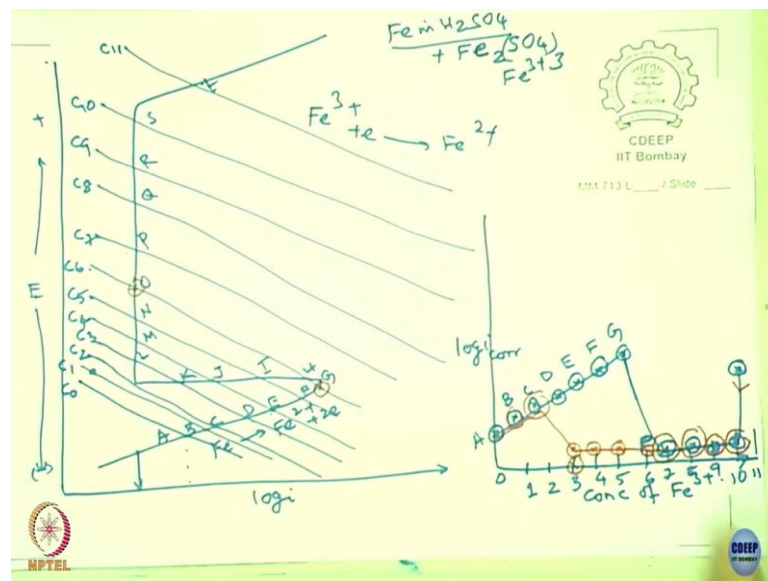 Fe in H2SO4
+ Fe2(SO4)3
Fe3+
Fe3+
+e → Fe2+
CDEEP
IIT Bombay
MM 713 L____ / Slide ____
C11
C10
C9
C8
C7
C6
C5
C4
C3
C2
C1
C0
+
E
-
S
R
Q
P
O
N
M
L
K J I
G
A B C D E F
Fe → Fe2+ +2e
log i
log icorr
A B C D E F G
0 1 2 3 4 5 6 7 8 9 10 11
Conc of Fe3+
NPTEL
CDEEP
IIT Bombay